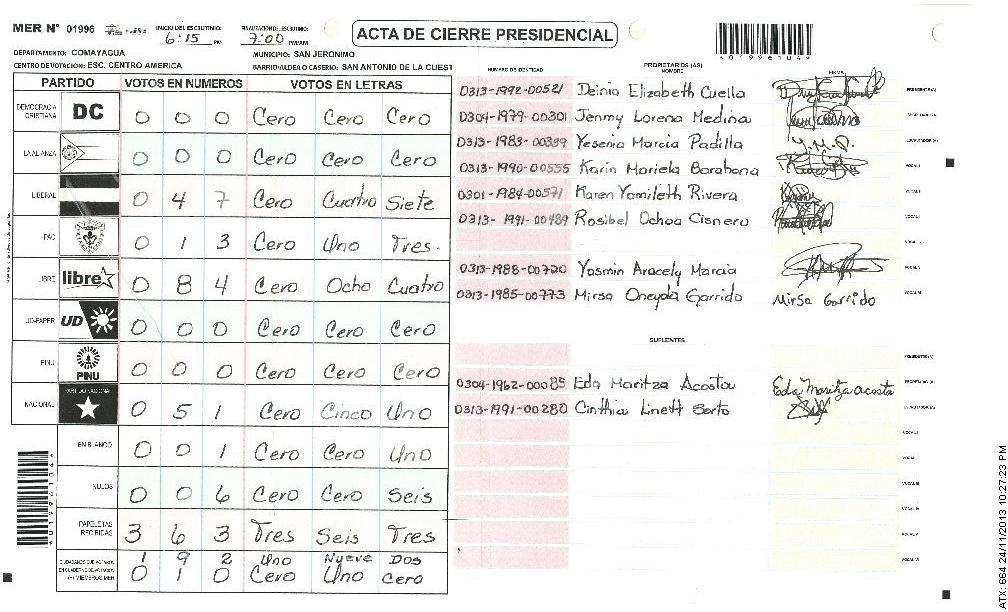 MER N° 01996 INICIO DEL ESCRUTINIO: 6:15 PM FINALIZACION DEL ESCRUTINIO: 7:00 PM/AM
ACTA DE CIERRE PRESIDENCIAL
*01996104*
DEPARTAMENTO: COMAYAGUA MUNICIPIO: SAN JERONIMO
CENTRO DE VOTACION: ESC. CENTRO AMERICA BARRIO/ALDEA O CASERIO: SAN ANTONIO DE LA CUEST
PARTIDO VOTOS EN NUMEROS VOTOS EN LETRAS
DEMOCRACIA CRISTIANA DC 0 0 0 Cero Cero Cero
LA ALIANZA 0 0 0 Cero Cero Cero
LIBERAL 0 4 7 Cero Cuatro Siete
PAC 0 1 3 Cero Uno Tres.
LIBRE libre 0 8 4 Cero Ocho Cuatro
UD-FAPER UD 0 0 0 Cero Cero Cero
PINU PINU 0 0 0 Cero Cero Cero
NACIONAL PARTIDO NACIONAL 0 5 1 Cero Cinco Uno
EN BLANCO 0 0 1 Cero Cero Uno
NULOS 0 0 6 Cero Cero Seis
PAPELETAS RECIBIDAS 3 6 3 Tres Seis Tres
1 9 2 Uno Nueve Dos
0 1 0 Cero Uno Cero
*01996104*
NUMERO DE IDENTIDAD PROPIETARIOS (AS) NOMBRE FIRMA
0313-1992-00521 Deinia Elizabeth Cuella PRESIDENTE(A)
0304-1979-00301 Jenmy Lorena Medina SECRETARIO(A)
0313-1983-00399 Yesenia Marcia Padilla Y.M.P. ESCRUTADOR(A)
0313-1990-00555 Karin Mariela Barahona VOCAL I
0301-1984-00571 Karen Yamileth Rivera
0313-1991-00489 Rosibel Ochoa Cisnero
0313-1988-00720 Yasmin Aracely Marcia
0313-1985-00773 Mirsa Oneyda Garrido Mirsa Garrido
SUPLENTES
PRESIDENTE(A)
0304-1962-00085 Eda Maritza Acosta Eda Maritza acosta SECRETARIO(A)
0313-1991-00280 Cinthia Linett Serto ESCRUTADOR(A)
ATX: 664 24/11/2013 10:27:23 PM